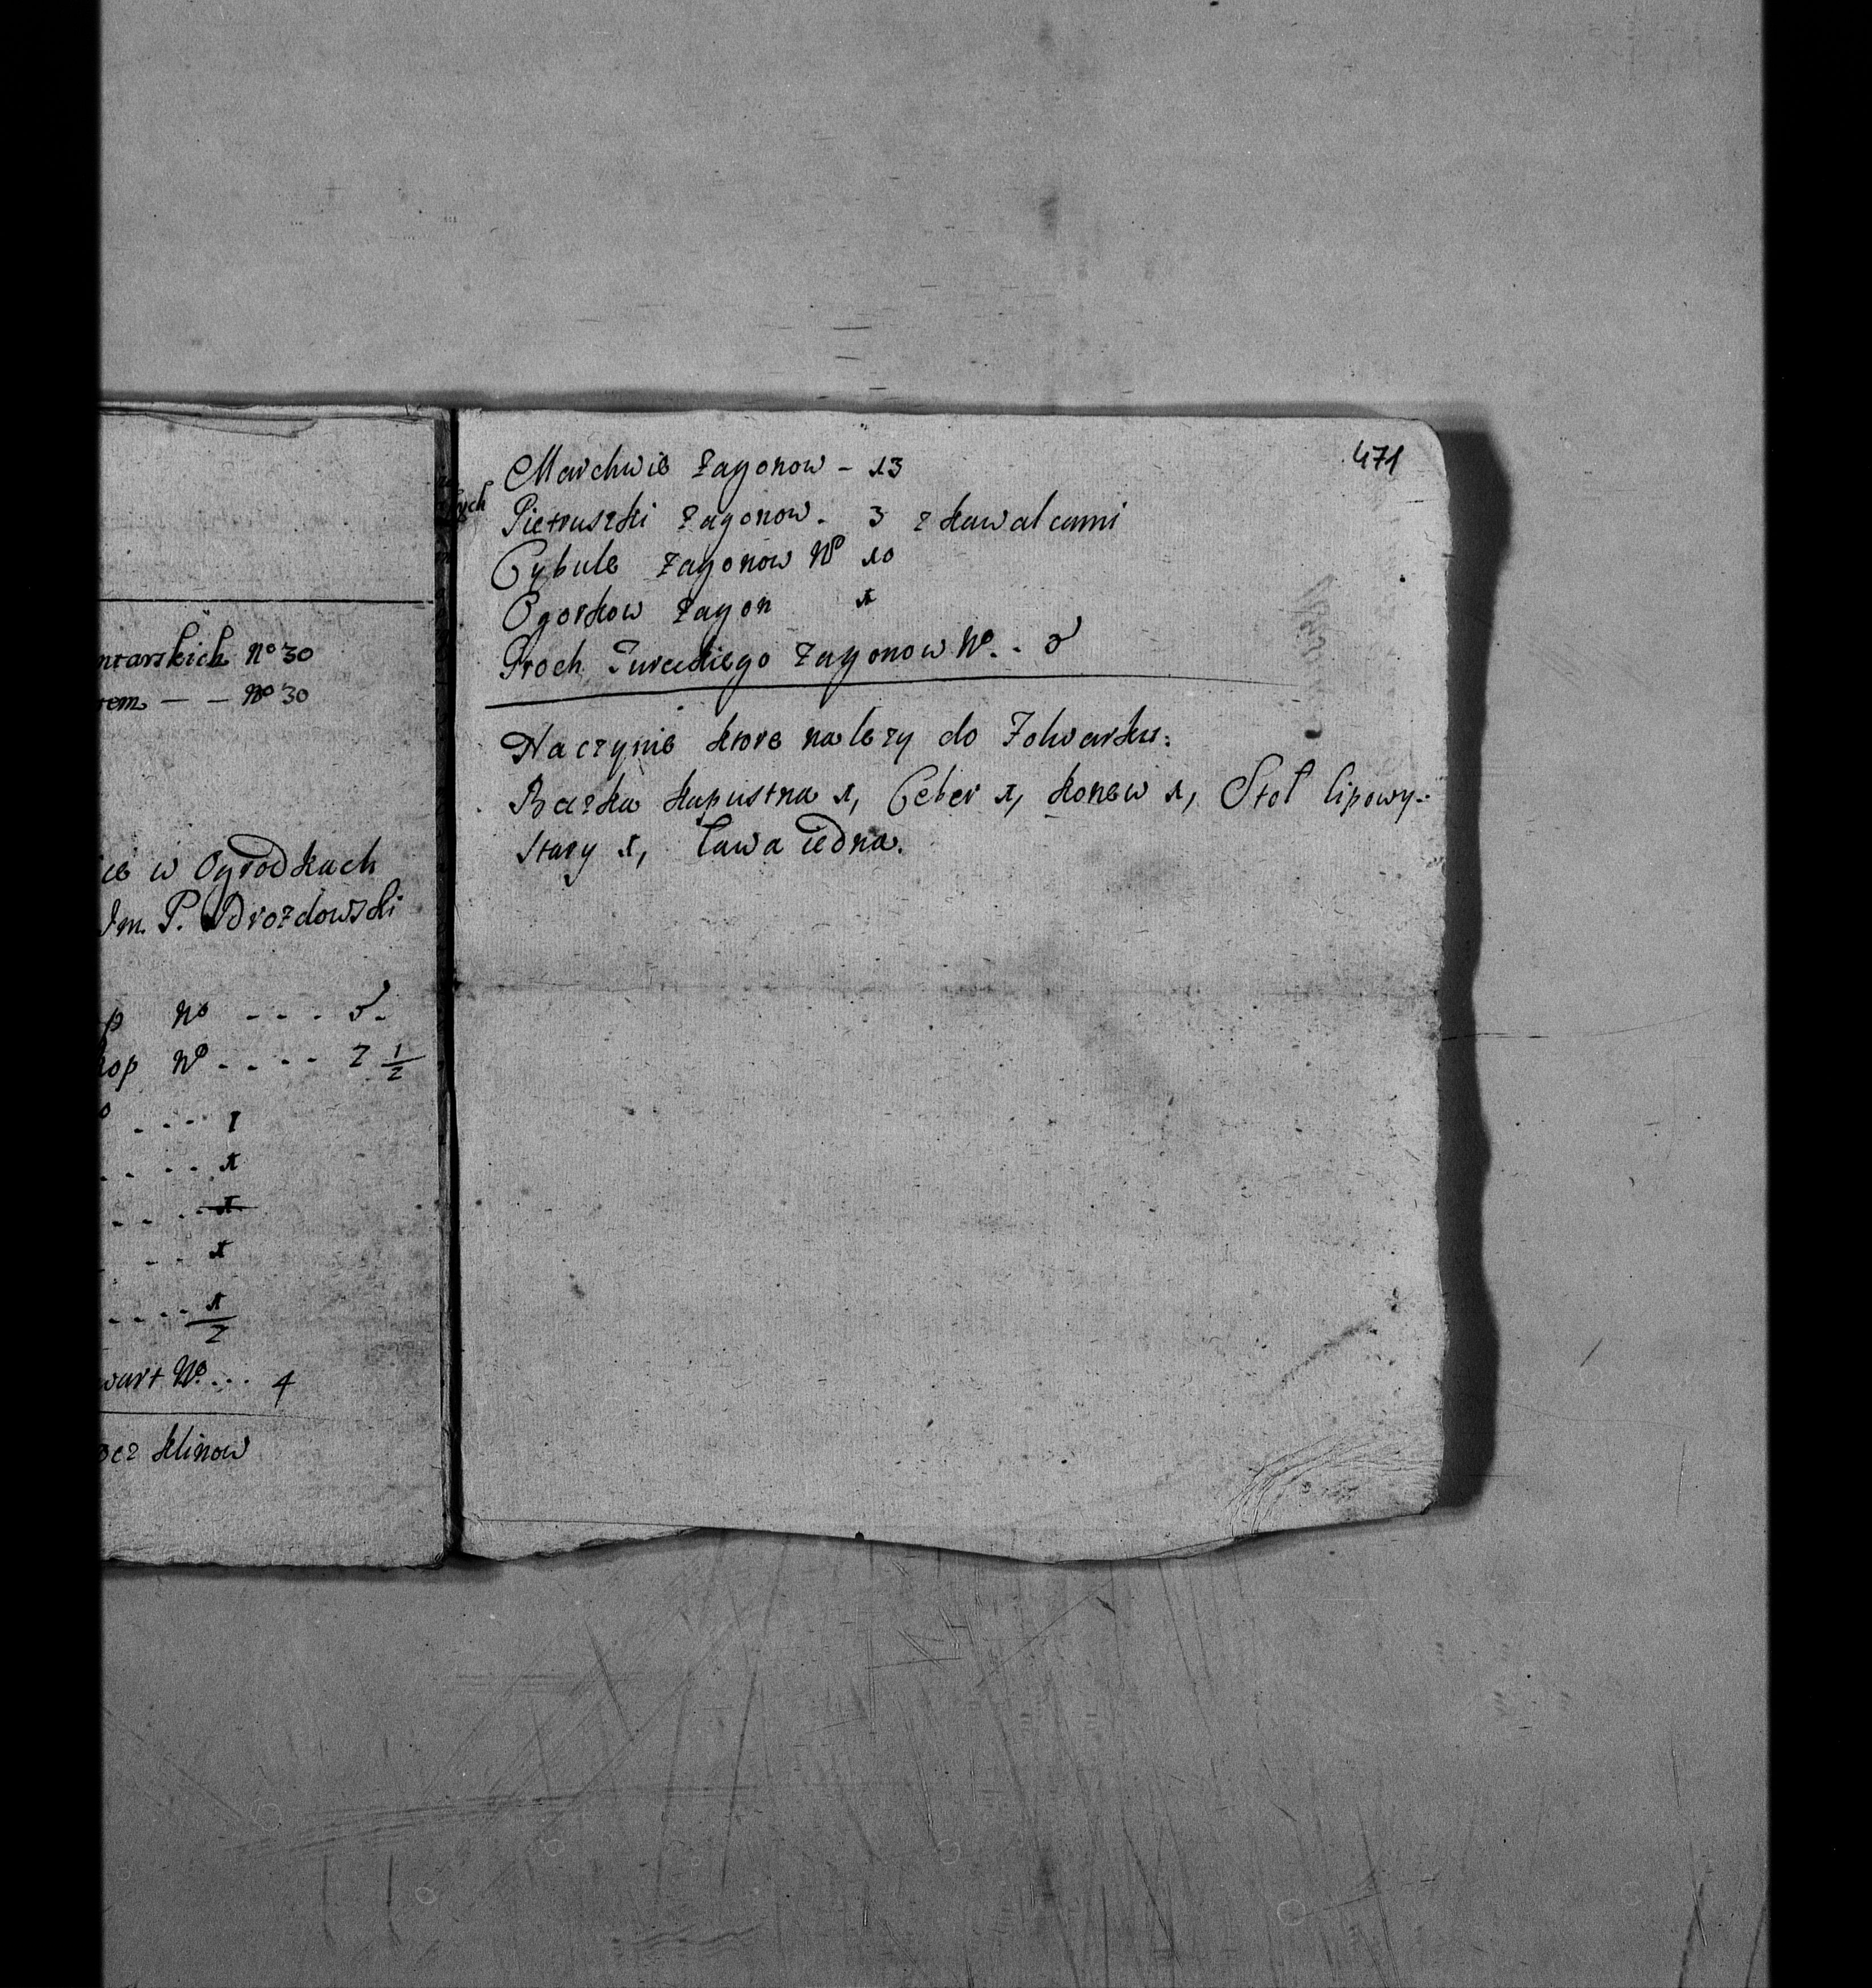 ntarskich No 30
rem — — No 30
ce w Ogrodkach
Im. P. Drozdowski
p No - - - 5.
kop No - - - - 2 1/2
- - - - 1
- - - - 1
- - - 1
- - 1
- - - - 1/2
wart No. . . . 4
bez klinow
471
Marchwie Zagonow - 13
Pietruszki Zagonow. 3 z kawalcami
Cybule Zagonow No 10
Ogorkow Zagon 1
Groch Tureckiego Zagonow No. . 5
Naczynie ktore nalezy do Folwarku:
Beczka kapustna 1, Ceber 1, konew 1, Stoł lipowy
stary 1, Ława iedna.